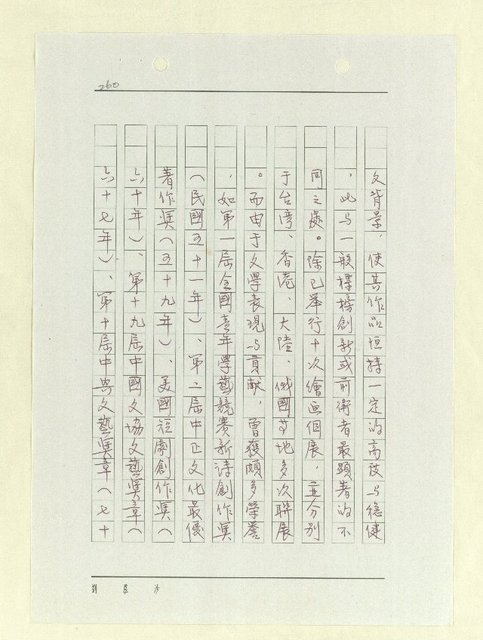 260
文背景,使其作品恒持一定的高度与穩健
,此与一般標榜創新或前衛者最顕著的不
同之處。除已举行十次繪画個展,並分别
于台湾、香港、大陸、俄國等地多次聯展
。而由于文學表現与貢献,曾獲頗多榮譽
,如第一屆全國青年學藝競賽新詩創作奖
(民國五十一年)、第二屆中正文化最優
著作奖(五十九年)、美國短劇創作奖(
六十年)、第十九屆中國文协文藝奖章(
六十七年)、第十屆中興文藝奖章(七十
劉 慕 沙